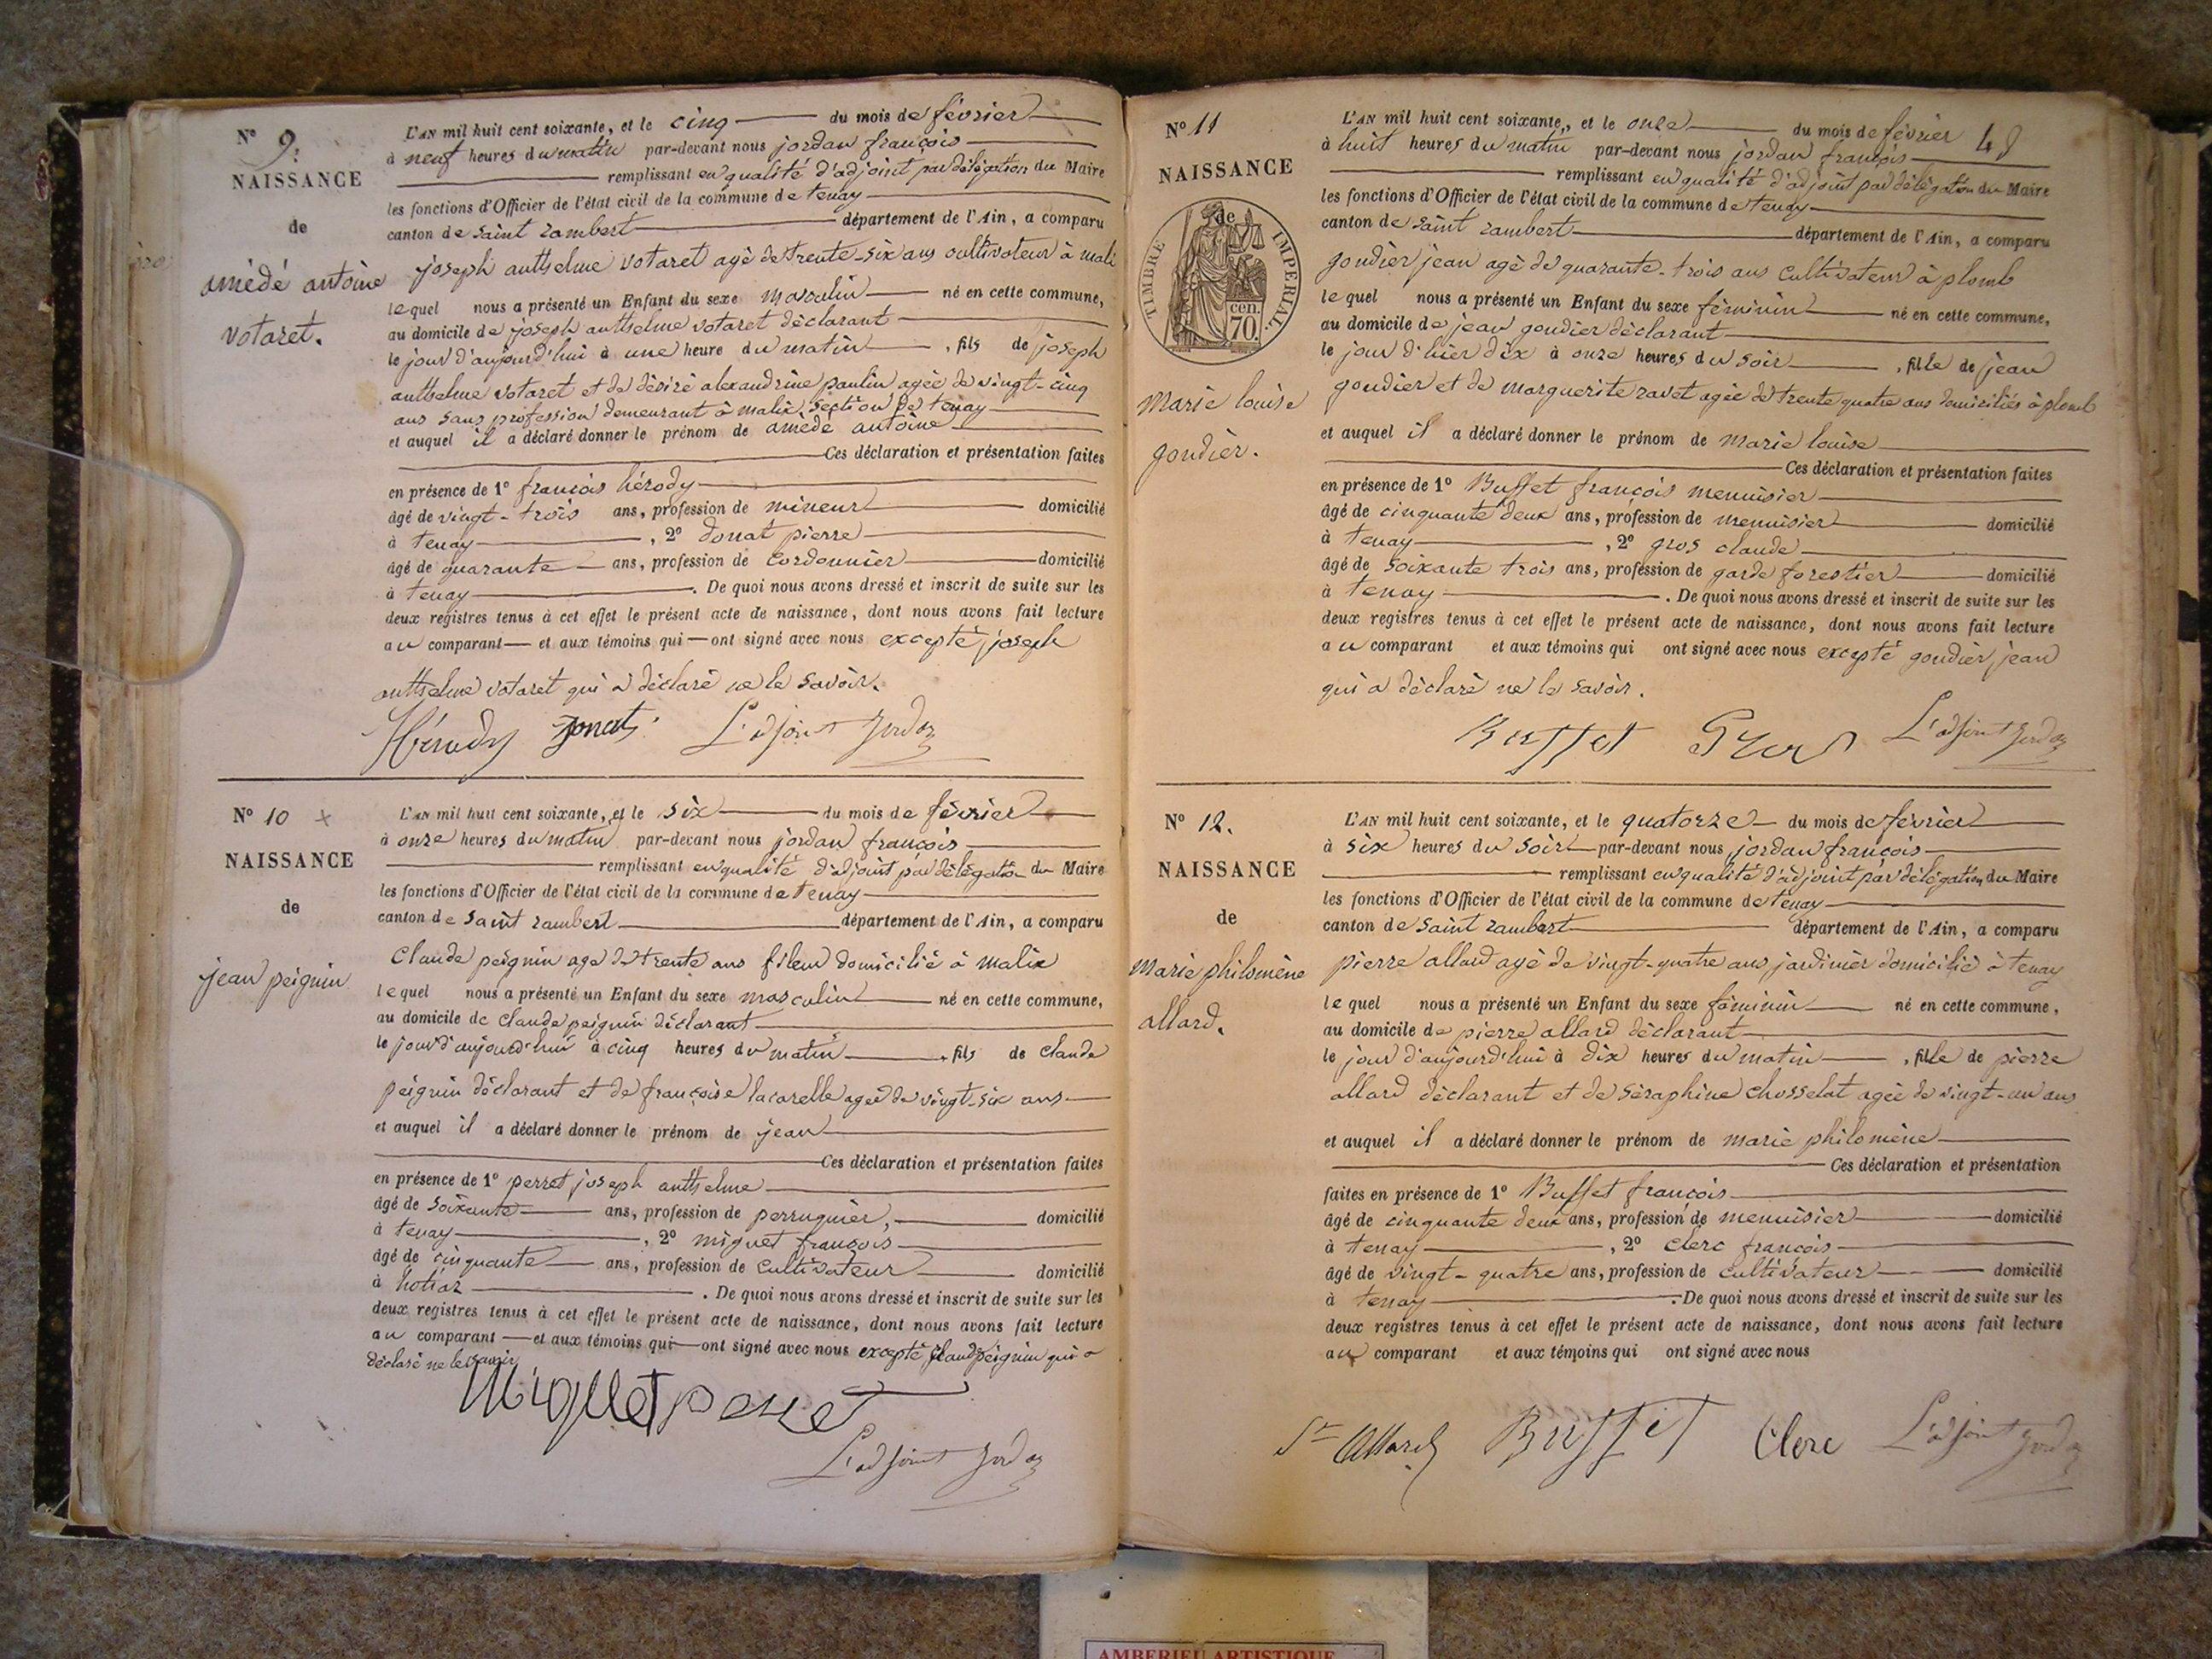 N° 9.
NAISSANCE
de
amédé antoine
votaret.
L'AN mil huit cent soixante, et le cinq du mois de février
à neuf heures du matin par-devant nous jordan françois
remplissant en qualité d'adjoint par délégation du Maire
les fonctions d'Officier de l'état civil de la commune de tenay
canton de saint rambert département de l'Ain, a comparu
joseph anthelme votaret agé de trente-six ans cultivateur à mali
lequel nous a présenté un Enfant du sexe masculin né en cette commune,
au domicile de joseph anthelme votaret déclarant
le jour d'aujourd'hui à une heure du matin, fils de joseph
anthelme votaret et de désiré alexandrine paulin agée de vingt-cinq
ans sans profession demeurant à malix section de tenay
et auquel il a déclaré donner le prénom de amédé antoine
Ces déclaration et présentation faites
en présence de 1° françois hérody
âgé de vingt-trois ans, profession de mineur domicilié
à tenay, 2° donat pierre
âgé de quarante ans, profession de cordonnier domicilié
à tenay. De quoi nous avons dressé et inscrit de suite sur les
deux registres tenus à cet effet le présent acte de naissance, dont nous avons fait lecture
au comparant et aux témoins qui ont signé avec nous excepté joseph
anthelme votaret qui a déclaré ne le savoir.
Hérody Donat L'adjoint Jordan
N° 10
NAISSANCE
de
jean peignin
L'AN mil huit cent soixante, et le six du mois de février
à onze heures du matin par-devant nous jordan françois
remplissant en qualité d'adjoint par délégation du Maire
les fonctions d'Officier de l'état civil de la commune de tenay
canton de saint rambert département de l'Ain, a comparu
Claude peignin age de trente ans fileur domicilié à malix
lequel nous a présenté un Enfant du sexe masculin né en cette commune,
au domicile de claude peignin déclarant
le jour d'aujourd'hui à cinq heures du matin, fils de claude
peignin déclarant et de françoise lacarelle agée de vingt-six ans
et auquel il a déclaré donner le prénom de jean
Ces déclaration et présentation faites
en présence de 1° perret joseph anthelme
âgé de soixante ans, profession de perruquier, domicilié
à tenay, 2° miguet françois
âgé de cinquante ans, profession de cultivateur domicilié
à hotiaz. De quoi nous avons dressé et inscrit de suite sur les
deux registres tenus à cet effet le présent acte de naissance, dont nous avons fait lecture
au comparant et aux témoins qui ont signé avec nous excepté Claude peignin qui a
déclaré ne le savoir
Miguet perret
L'adjoint Jordan
48
N° 11
NAISSANCE
de
TIMBRE IMPERIAL
cen.
70.
marie louise
goudier.
L'AN mil huit cent soixante, et le onze du mois de février
à huit heures du matin par-devant nous jordan françois
remplissant en qualité d'adjoint par délégation du Maire
les fonctions d'Officier de l'état civil de la commune de tenay
canton de saint rambert département de l'Ain, a comparu
goudier jean agé de quarante-trois ans cultivateur à plomb
lequel nous a présenté un Enfant du sexe féminin né en cette commune,
au domicile de jean goudier déclarant
le jour d'hier dix à onze heures du soir, fille de jean
goudier et de marguerite ravet agée de trente quatre ans domiciliés à plomb
et auquel il a déclaré donner le prénom de marie louise
Ces déclaration et présentation faites
en présence de 1° Buffet françois menuisier
âgé de cinquante deux ans, profession de menuisier domicilié
à tenay, 2° gros claude
âgé de soixante trois ans, profession de garde forestier domicilié
à tenay. De quoi nous avons dressé et inscrit de suite sur les
deux registres tenus à cet effet le présent acte de naissance, dont nous avons fait lecture
au comparant et aux témoins qui ont signé avec nous excepté goudier jean
qui a déclaré ne le savoir.
Buffet Gros L'adjoint Jordan
N° 12.
NAISSANCE
de
marie philomène
allard.
L'AN mil huit cent soixante, et le quatorze du mois de février
à six heures du soir par-devant nous jordan françois
remplissant en qualité d'adjoint par délégation du Maire
les fonctions d'Officier de l'état civil de la commune de tenay
canton de saint rambert département de l'Ain, a comparu
pierre allard agé de vingt-quatre ans jardinier domicilié à tenay
lequel nous a présenté un Enfant du sexe féminin né en cette commune,
au domicile de pierre allard déclarant
le jour d'aujourd'hui à dix heures du matin, fille de pierre
allard déclarant et de séraphine chosselat agée de vingt-un ans
et auquel il a déclaré donner le prénom de marie philomène
Ces déclaration et présentation
faites en présence de 1° Buffet françois
âgé de cinquante deux ans, profession de menuisier domicilié
à tenay, 2° clerc françois
âgé de vingt-quatre ans, profession de cultivateur domicilié
à tenay. De quoi nous avons dressé et inscrit de suite sur les
deux registres tenus à cet effet le présent acte de naissance, dont nous avons fait lecture
au comparant et aux témoins qui ont signé avec nous
Allard Buffet Clerc L'adjoint Jordan
AMBERIEU ARTISTIQUE